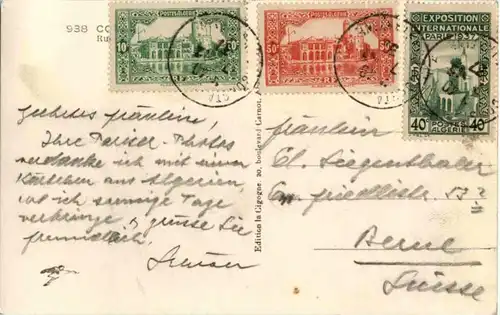 938 CO
Ru
10 POSTES ALGERIE 10c
50c POSTES ALGERIE 50c
EXPOSITION
INTERNATIONALE
PARIS 1937
ALGERIE
40c 40c
Geehrtes Fräulein,
Ihre Pariser-Photos
verdanke ich mit einem
Kärtchen aus Algerien,
wo ich sonnige Tage
verbringe & grüsse Sie
freundlich.
Edition la Cigogne. 30, boulevard Carnot, A
Fräulein
Cl. Siegenthaler
Berne
Suisse